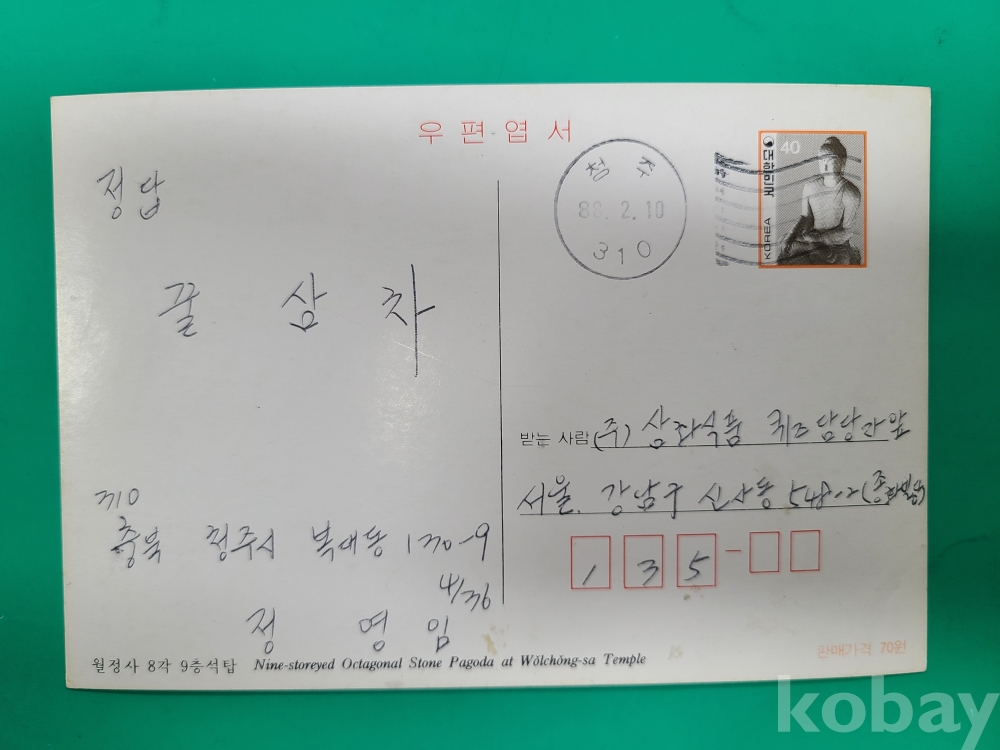 우편엽서
정답
꿀 삼 차
청주
88.2.10
310
40
대한민국
KOREA
받는 사람 (주) 삼화식품 퀴즈담당자앞
서울. 강남구 신사동 548-2 (종화빌딩)
135-
310
충북 청주시 복대동 130-9
4/36
정 영 임
월정사 8각 9층석탑 Nine-storeyed Octagonal Stone Pagoda at Wŏlchŏng-sa Temple
판매가격 70원
kobay